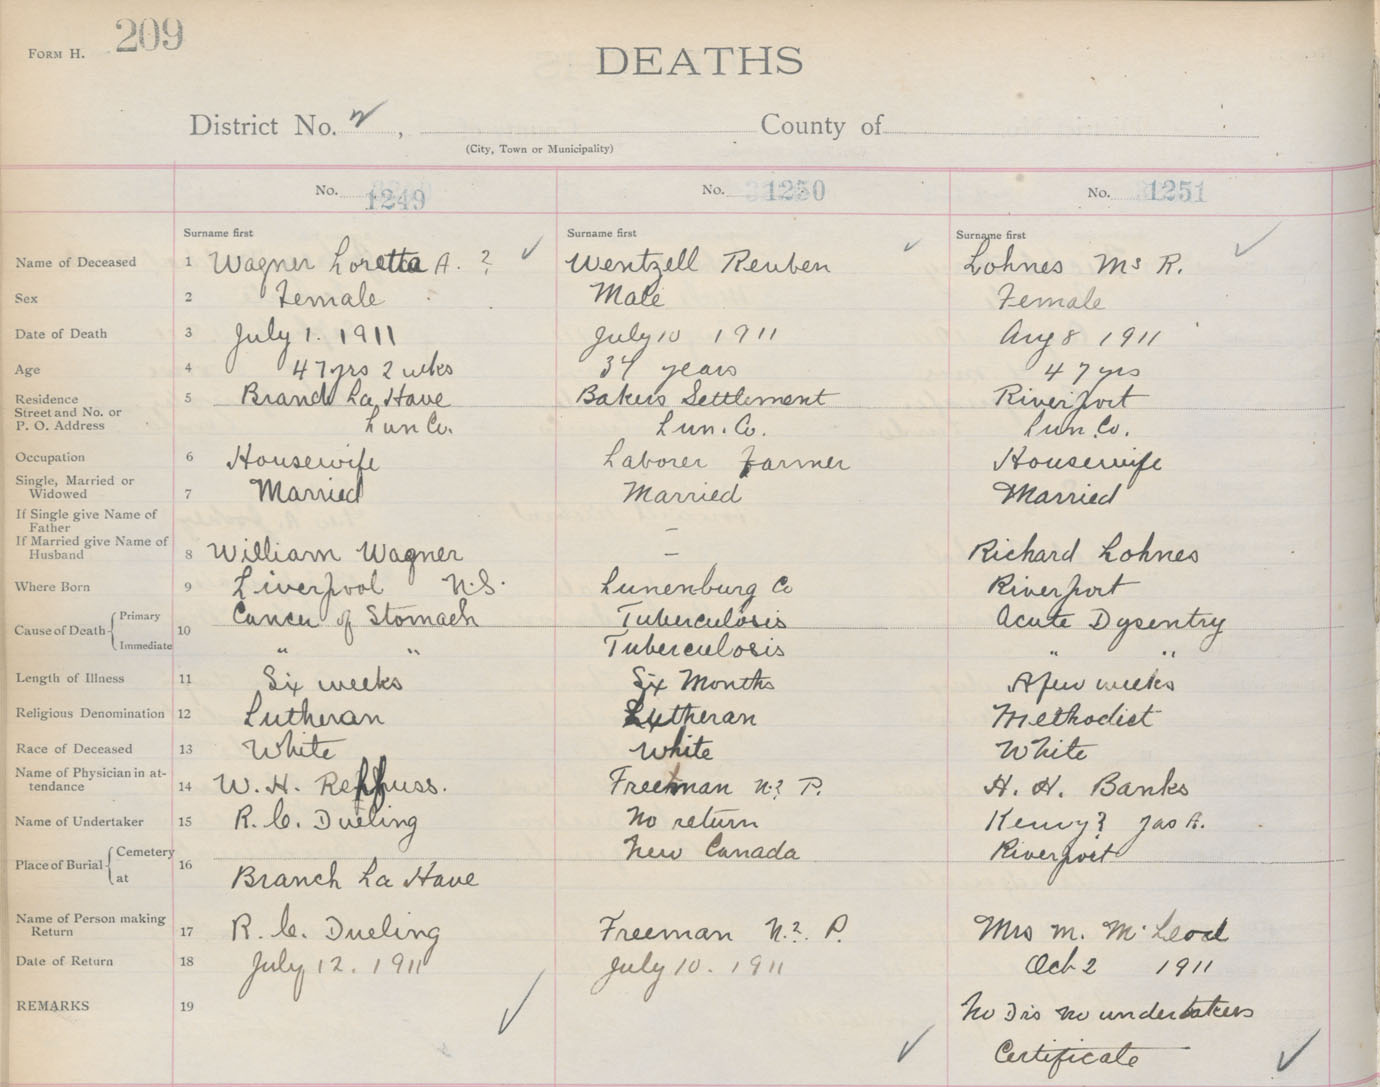 FORM H. 209
DEATHS
District No. 2, County of
(City, Town or Municipality)
No. 1249 No. 1250 No. 1251
Surname first Surname first Surname first
Name of Deceased 1 Wagner Loretta A. ? Wentzell Reuben Lohnes Mrs R.
Sex 2 Female Male Female
Date of Death 3 July 1. 1911 July 10 1911 Aug 8 1911
Age 4 47 yrs 2 wks 34 years 47 yrs
Residence 5 Branch La Have Bakers Settlement Riverport
Street and No. or
P. O. Address Lun Co. Lun. Co. Lun. Co.
Occupation 6 Housewife Laborer Farmer Housewife
Single, Married or
Widowed 7 Married Married Married
If Single give Name of
Father –
If Married give Name of
Husband 8 William Wagner – Richard Lohnes
Where Born 9 Liverpool N.S. Lunenburg Co Riverport
Cause of Death Primary 10 Cancer of Stomach Tuberculosis Acute Dysentry
Immediate " " Tuberculosis " "
Length of Illness 11 Six weeks Six Months A few weeks
Religious Denomination 12 Lutheran Lutheran Methodist
Race of Deceased 13 White White White
Name of Physician in at-
tendance 14 W. H. Rehfuss. Freeman N? P. H. H. Banks
Name of Undertaker 15 R. C. Dueling No return Jas A.
Place of Burial Cemetery 16 New Canada Riverport
at Branch La Have
Name of Person making
Return 17 R. C. Dueling Freeman N.?. P. Mrs M. McLeod
Date of Return 18 July 12. 1911 July 10. 1911 Oct 2 1911
REMARKS 19 No Drs no undertakers
Certificate